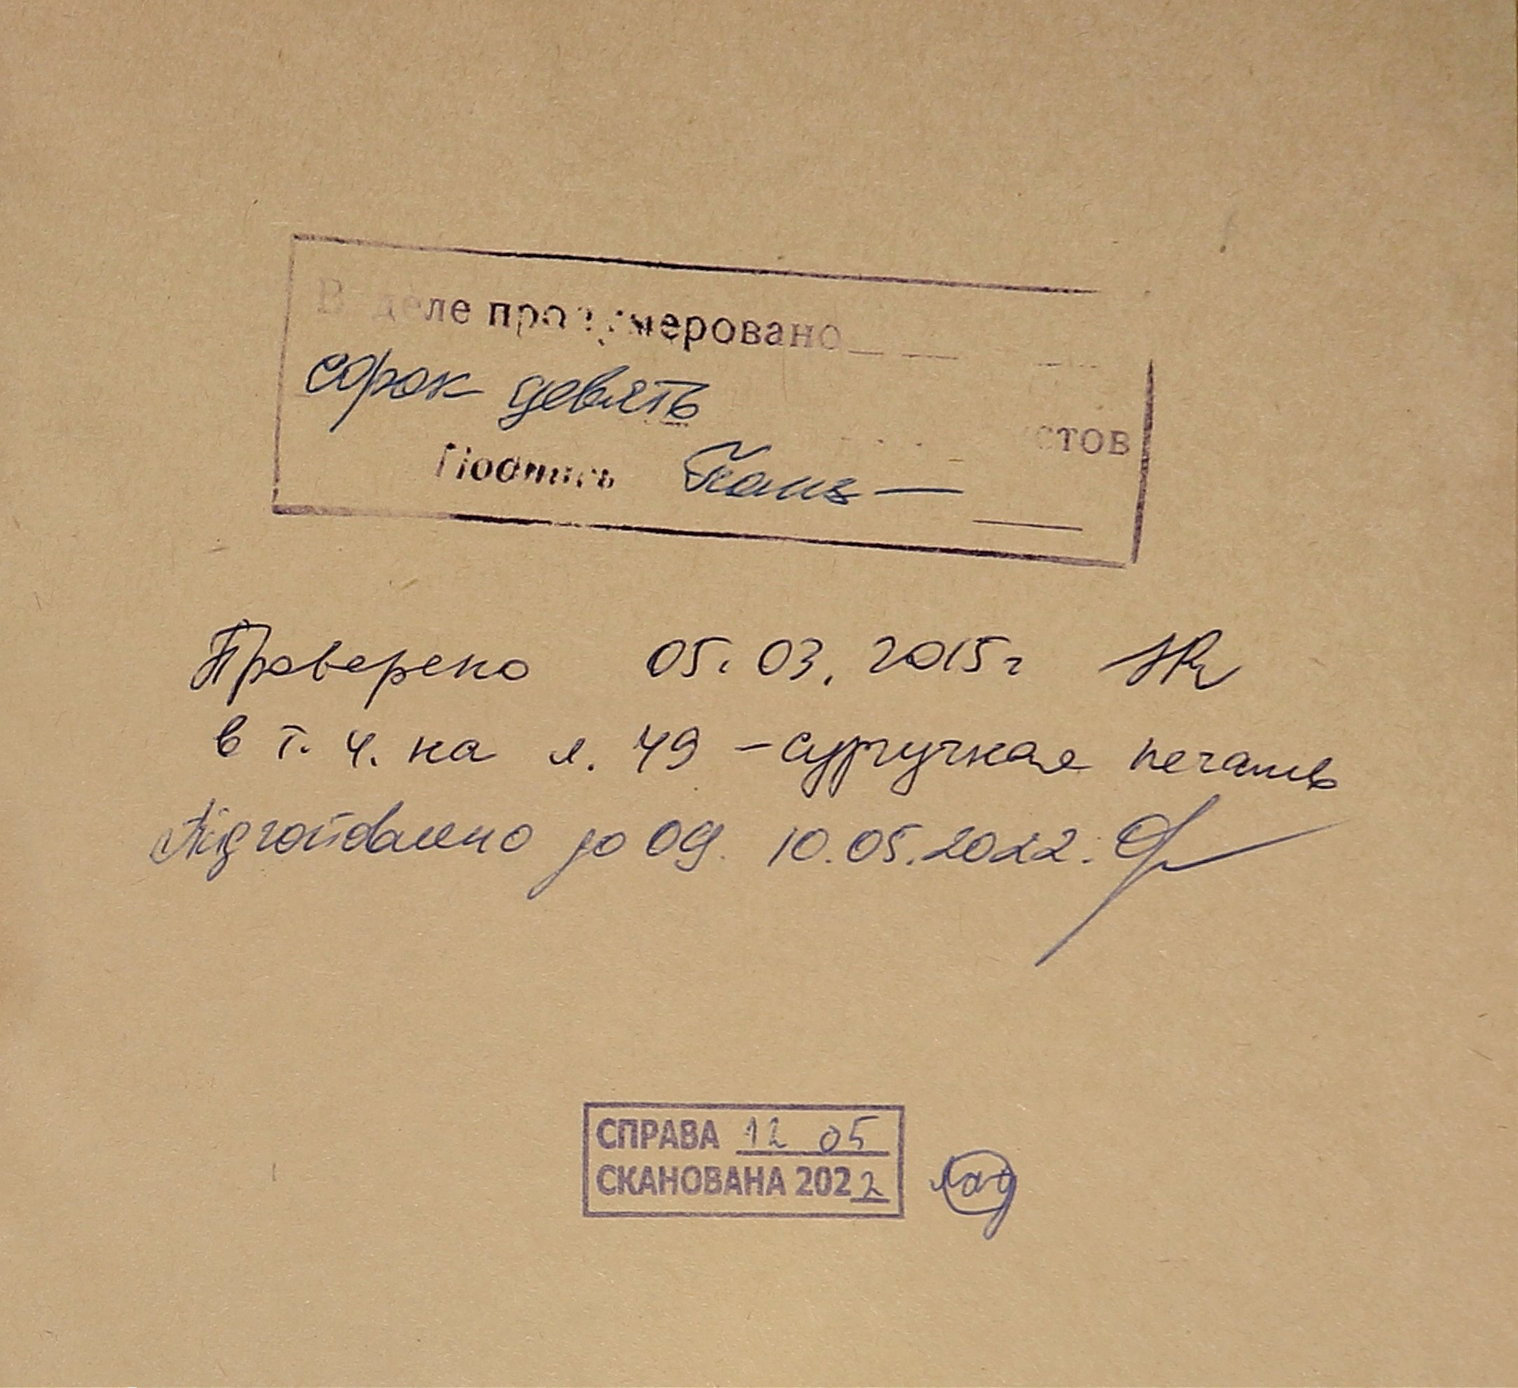 В деле пронумеровано
сорок девять
листов
Подпись
Проверено 05.03.2015г
в т.ч. на л. 49 - сургучная печать
Підготовлено до ОЦ. 10.05.2022.
СПРАВА 12 05
СКАНОВАНА 2022